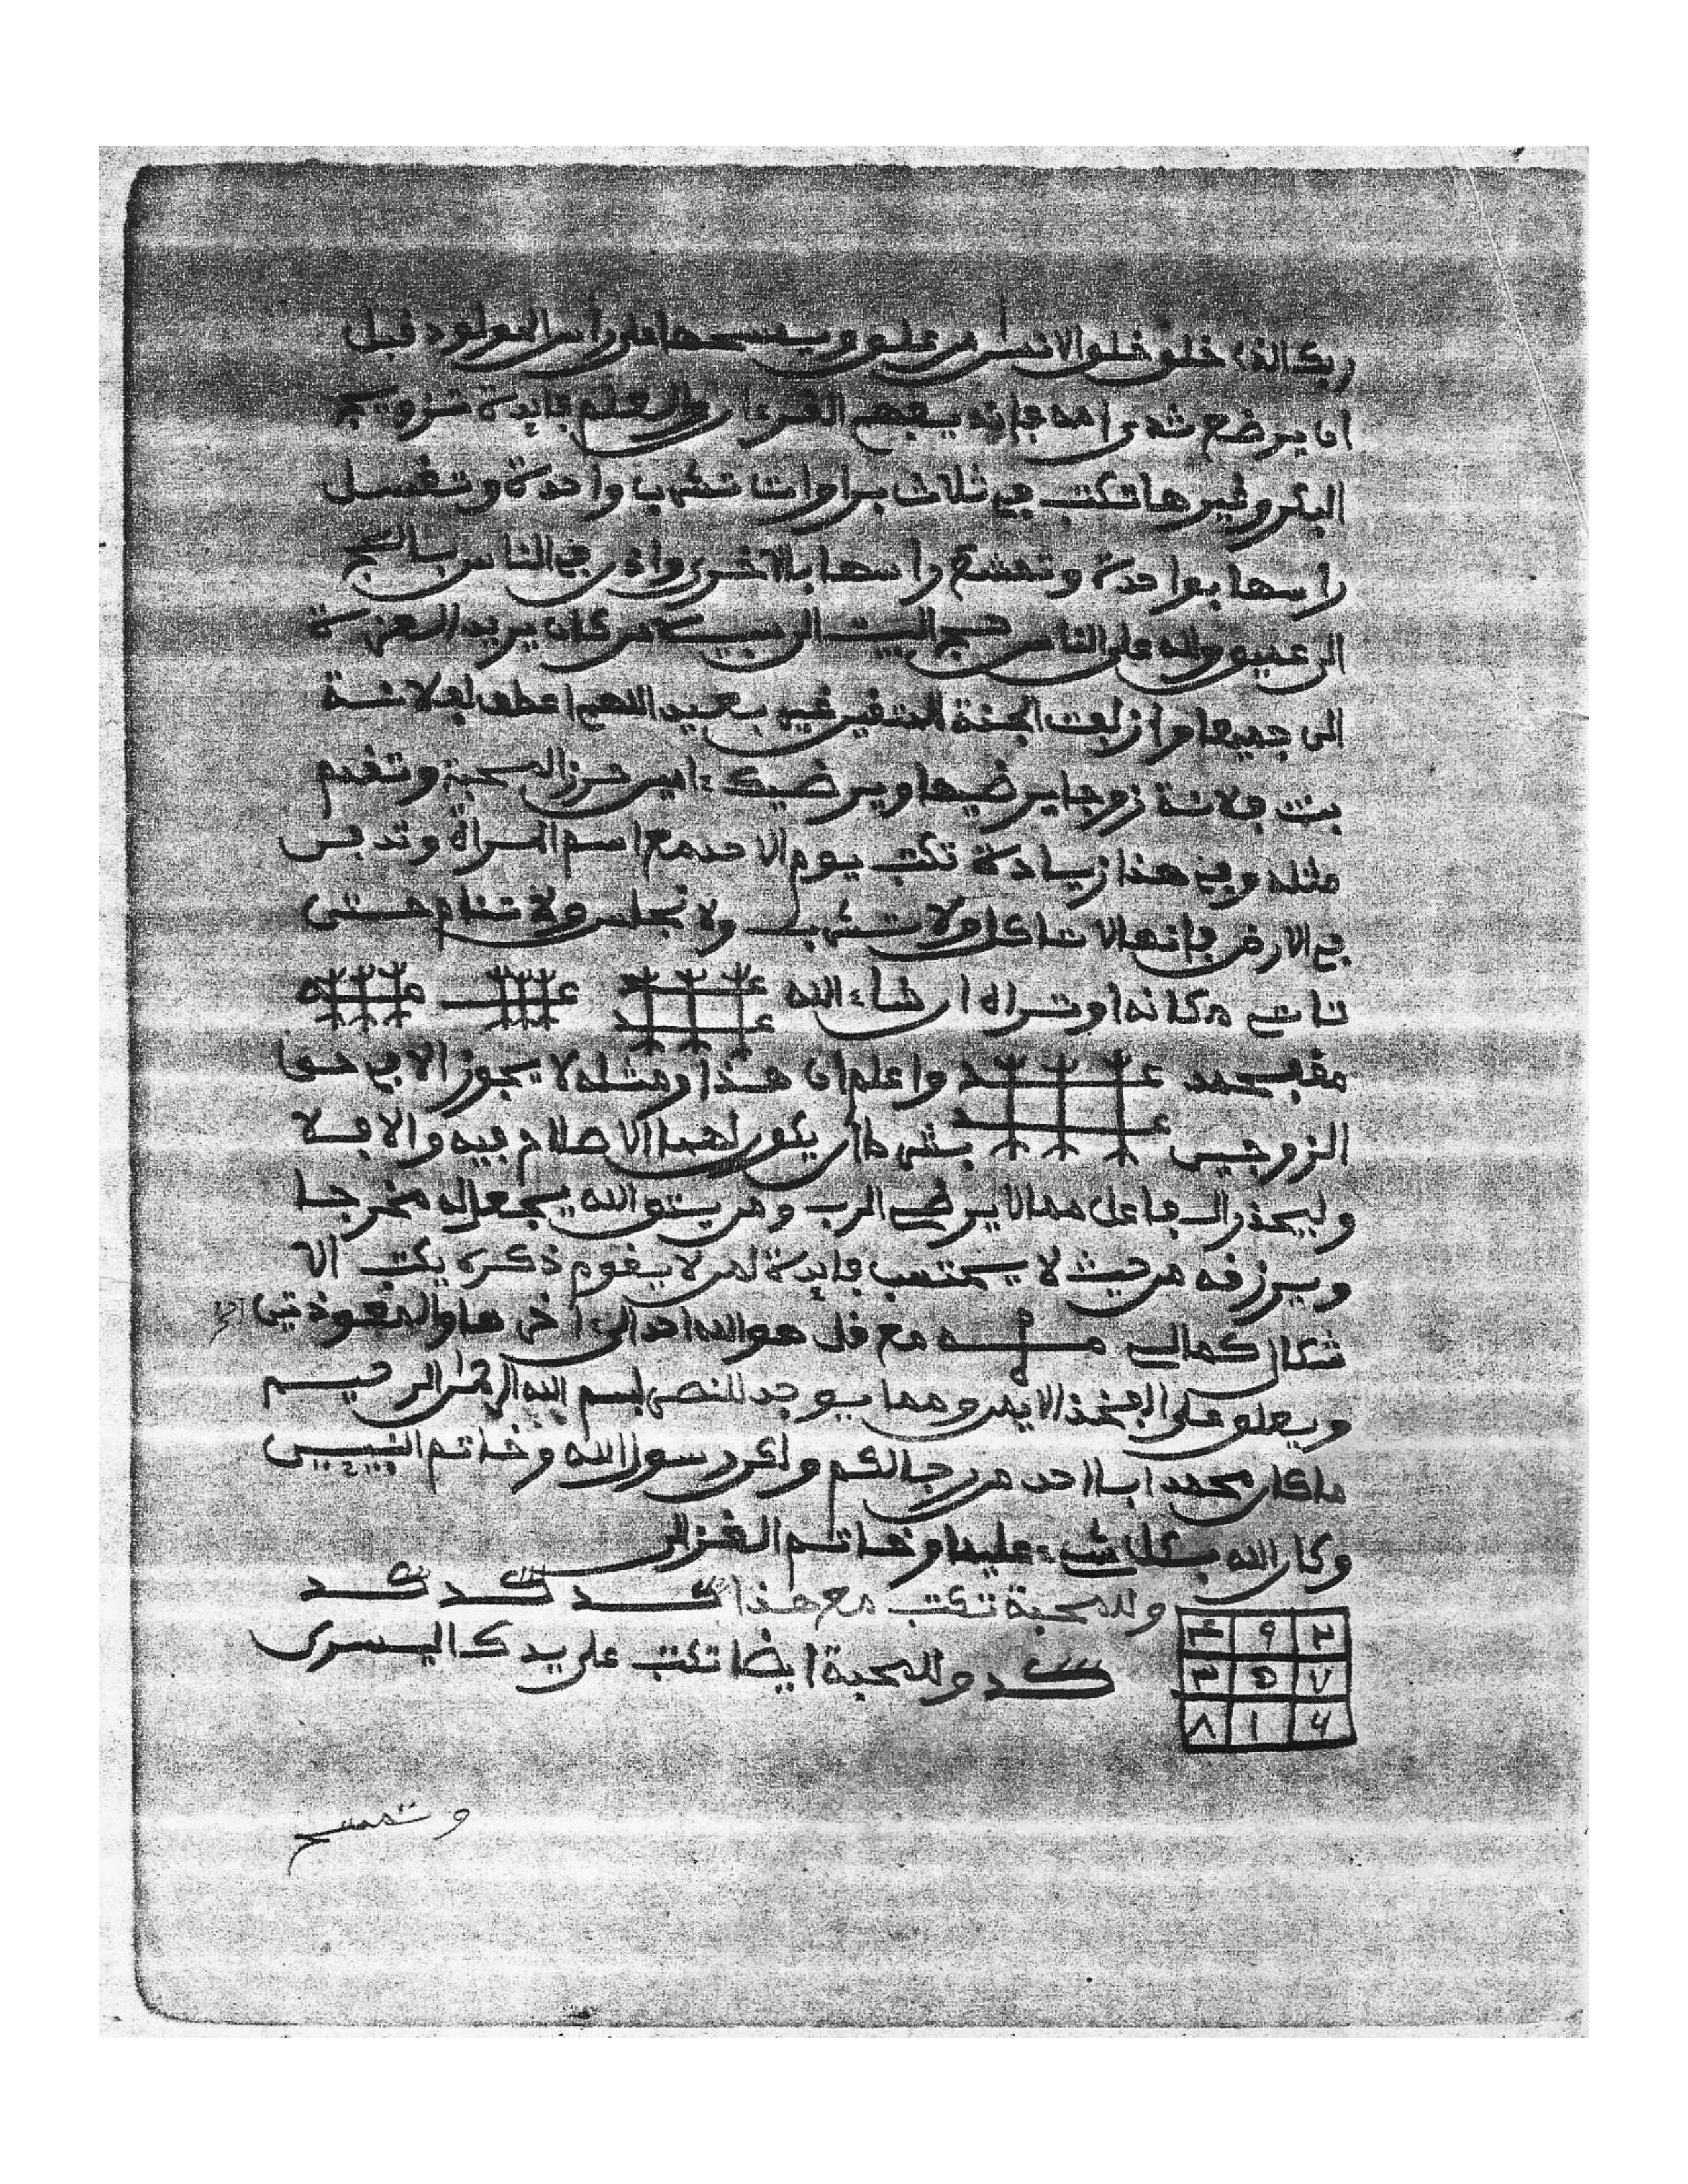 ربك الذي خلق خلق الانسان من علق ويمسحها على راس المولود قبل
ان يرضع ثدي امه فانه يفهم القرءان والعلم فايدة تزويج
البكر وغيرها تكتب في ثلاث براوات تشرب واحدة وتغسل
راسها بواحدة وتمشط راسها بالاخرى واذن في الناس بالحج
الى عميق ولله على الناس حج البيت الى سبيلا من كان يريد العزة
الى جميعا وازلفت الجنة للمتقين غير بعيد اللهم اعطف لفلانة
بنت فلانة زوجا يرضيها ويرضيك ءامين حرز المحبة وتقدم
مثله وفي هذا زيادة تكتب يوم الاحد مع اسم المراة وتدفن
في الارض فانها لا تاكل ولا تشرب ولا تجلس ولا تنام حتى
تاتي مكانه او تراه ان شاء الله
واعلم ان هذا ومثله لا يجوز الا في حق
الزوجين بشرط ان يكون لهما الاصلاح فيه والا فلا
وليحذر الفاعل مما لا يرضي الرب ومن يتق الله يجعل له مخرجا
ويرزقه من حيث لا يحتسب فايدة لمن لا يقوم ذكره يكتب الا
شكال كمالي مع قل هو الله احد الى اخرها والمعوذتين
ويعلق على الفخذ الايمن ومما يوجد للنصر بسم الله الرحمن الرحيم
ما كان محمد ابا احد من رجالكم ولكن رسول الله وخاتم النبيين
وكان الله بكل شيء عليما وخاتم الغزالي
وللمحبة تكتب مع هذا كد كد كد
كد وللمحبة ايضا تكتب على يدك اليسرى
٢ ٩ ٤
٧ ٥ ٣
٦ ١ ٨
وتمسح